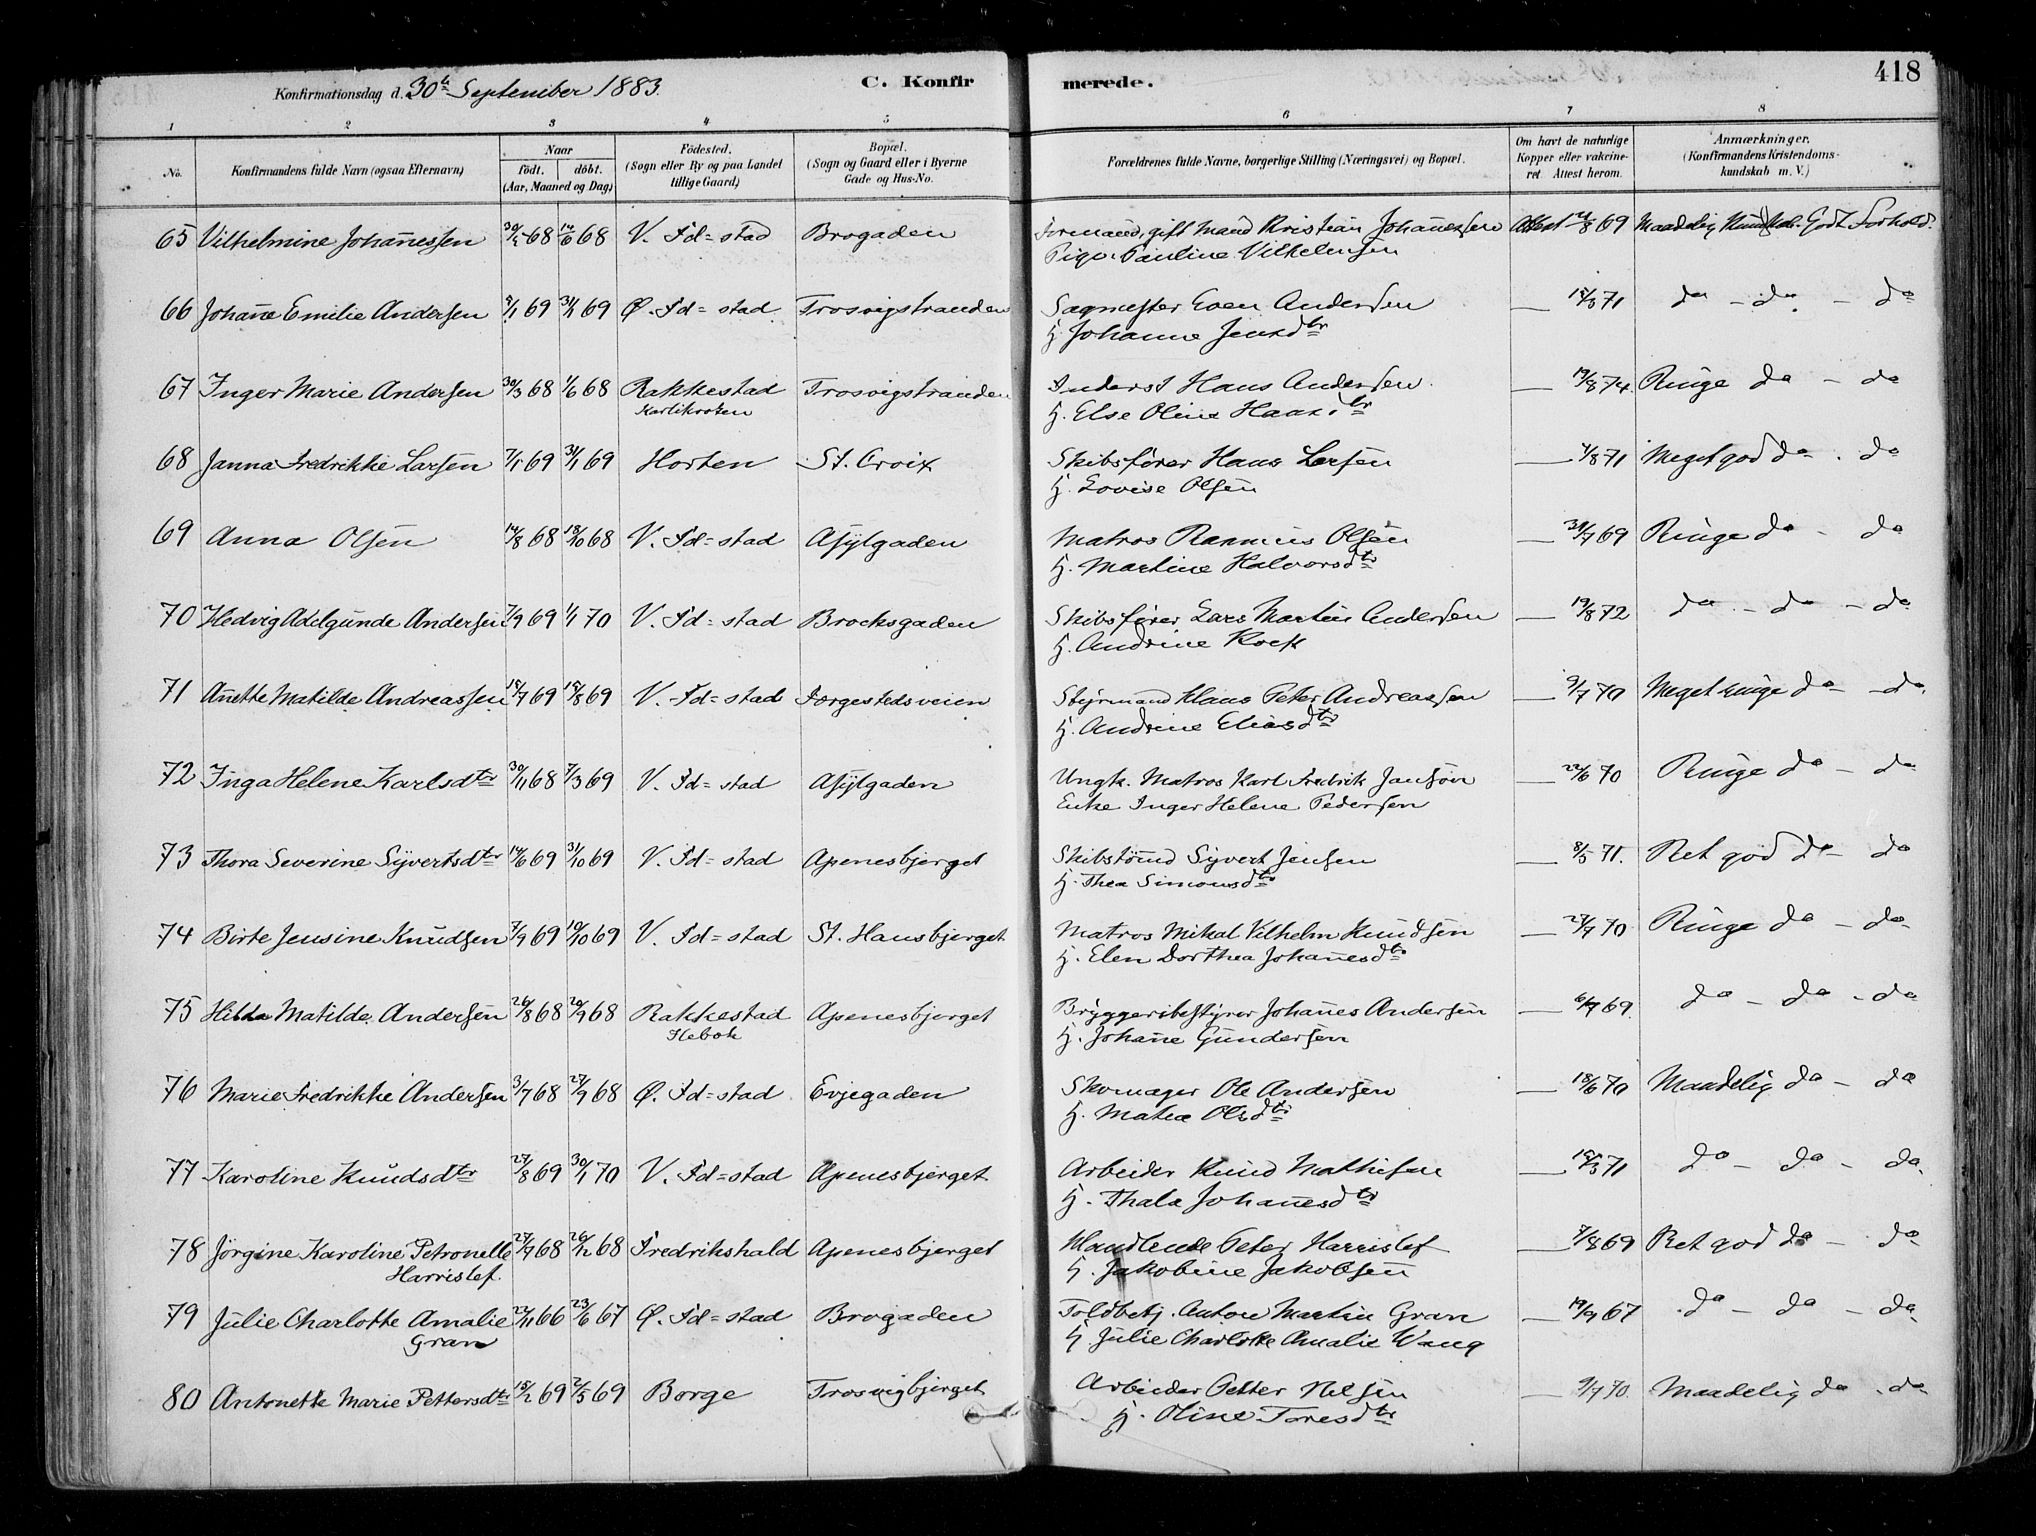 Konfirmationsdag d. 30te September 1883.
C. Konfir
merede.
418
1 2 3 4 5 6 7 8
No. Konfirmandens fulde Navn (ogsaa Efternavn) Naar födt. döbt. (Aar, Maaned og Dag) Födested. (Sogn eller By og paa Landet tillige Gaard) Bopæl. (Sogn og Gaard eller i Byerne Gade og Hus-No. Forældrenes fulde Navne, borgerlige Stilling (Næringsvei) og Bopæl. Om havt de naturlige Kopper eller vakcineret Attest herom. Anmærkninger. (Konfirmandens Kristendomskundskab m. V.)
65 Vilhelmine Johanessen 68 14/6 68 V. Fd=stad Brogaden gift Mand Kristian Johanessen Attest 69 Maadelig Kundskab. Godt Forhold.
Pige Pauline Vilhelmsen
66 Johane Emilie Andersen 69 69 Ø. Fd=stad Trosvigstranden Sagmester Even Andersen — 71 do - do - do
H. Johanne Jensdtr
67 Inger Marie Andersen 30/3 68 1/6 68 Rakkestad Trosvigstranden Inderst Hans Andersen — 19/8 74. Ringe do - do
H. Else Oline Hansdtr
68 Janna Fredrikke Larsen 7/1 69 31/1 69 Horten St. Croix Skibsfører Hans Larsen — 71 Meget god do - do
H. Lovise Olsen
69 Anna Olsen 14/8 68 18/10 68 V. Fd=stad Asylgaden Matros Rasmus Olsen — 31/7 69 Ringe do - do
H. Martine Halvorsdtr
70 Hedvig Adelgunde Andersen 7/9 69 1/1 70 V. Fd=stad Brocksgaden Skibsfører Lars Martin Andersen — 19/8 72 do - do - do
H. Andrine
71 Anette Matilde Andreassen 18/7 69 69 V. Fd=stad Torgestedsveien Styrmand Klaus Peter Andreassen — 9/7 70 Meget ringe do - do.
H. Andrine Eliasdtr
72 Inga Helene Karlsdtr 30/11 68 7/3 69 V. Fd=stad Asylgaden Ungk. Matros Karl Fredrik Jansøn — 22/6 70 Ringe do - do
Enke Inger Helene Pedersen
73 Thora Severine Syvertsdtr 14/6 69 31/10 69 V. Fd=stad Apenesbjerget Skibstømd Syvert Jensen — 8/5 71. Ret god do - do
H. Thea Simonsdtr
74 Birte Jensine Knudsen 7/9 69 10/10 69 V. Fd=stad St. Hansbjerget Matros Mikal Vilhelm Knudsen — 27/7 70 Ringe do - do
H. Elen Dorthea Johanesdtr
75 Hilda Matilde Andersen 26/8 68 20/9 68 Rakkestad Apenesbjerget Bryggeribestyrer Johanes Andersen — 69. do - do - do
H. Johane Gundersen
76 Marie Fredrikke Andersen 3/7 68 27/9 68 Ø. Fd=stad Evjegaden Skomager Ole Andersen — 18/6 70 Maadelig do - do
H. Matea Olsdtr
77 Karoline Knudsdtr 27/8 69 30/1 70 V. Fd=stad Apenesbjerget Arbeider Knud Mathisen — 71 do - do - do.
H. Thala Johanesdtr
78 Jørgine Karoline Petronelle 27/7 68 26/12 68 Fredrikshald Apenesbjerget Handlende Peter Harrislef — 69 Ret god do - do
Harrislef.
H. Jakobine Jakobsen
79 Julie Charlotte Amalie 22/11 66 23/6 67 Ø. Fd=stad Brogaden Toldbetj. Anton Martin Gran — 19/9 67 do - do - do
Gran
H. Julie Charlotte Amalie Wang
80 Antonette Marie Pettersdtr 15/2 69 2/5 69 Borge Trosvigbjerget Arbeider Petter Nelsen — 9/7 70. Maadelig do - do
H. Oline Toresdtr